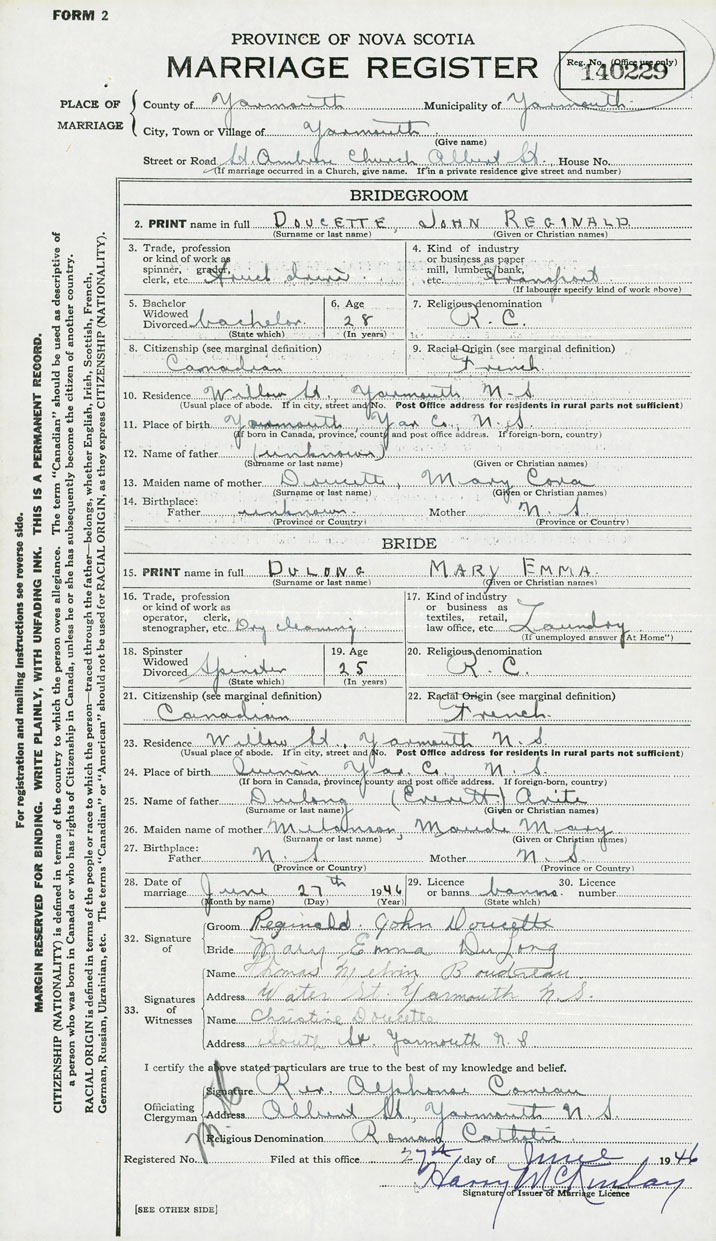 FORM 2
PROVINCE OF NOVA SCOTIA
MARRIAGE REGISTER
Reg. No. (Office use only)
140229
PLACE OF MARRIAGE
County of Yarmouth Municipality of Yarmouth
City, Town or Village of Yarmouth
(Give name)
Street or Road St. Ambrose Church Albert St., House No.
(If marriage occurred in a Church, give name. If in a private residence give street and number)
BRIDEGROOM
2. PRINT name in full DOUCETTE, JOHN REGINALD
(Surname or last name) (Given or Christian names)
3. Trade, profession or kind of work as spinner, grader, clerk, etc. Truck
4. Kind of industry or business as paper mill, lumber, bank, etc. Transport
(If labourer specify kind of work above)
5. Bachelor Widowed Divorced bachelor
(State which)
6. Age 28
(In years)
7. Religious denomination
R. C.
8. Citizenship (see marginal definition)
Canadian
9. Racial Origin (see marginal definition)
French
10. Residence Willow St., Yarmouth N. S.
(Usual place of abode. If in city, street and No. Post Office address for residents in rural parts not sufficient)
11. Place of birth Yarmouth, Yar Co., N. S.
(If born in Canada, province, county and post office address. If foreign-born, country)
12. Name of father (unknown)
(Surname or last name) (Given or Christian names)
13. Maiden name of mother Doucette, Mary Cora
(Surname or last name) (Given or Christian names)
14. Birthplace: Father unknown Mother N. S.
(Province or Country) (Province or Country)
BRIDE
15. PRINT name in full DULONG MARY EMMA
(Surname or last name) (Given or Christian names)
16. Trade, profession or kind of work as operator, clerk, stenographer, etc. Dry cleaning
17. Kind of industry or business as textiles, retail, law office, etc. Laundry
(If unemployed answer "At Home")
18. Spinster Widowed Divorced Spinster
(State which)
19. Age 25
(In years)
20. Religious denomination
R. C.
21. Citizenship (see marginal definition)
Canadian
22. Racial Origin (see marginal definition)
French
23. Residence Willow St., Yarmouth N. S.
(Usual place of abode. If in city, street and No. Post Office address for residents in rural parts not sufficient)
24. Place of birth Quinan Yar. Co., N. S.
(If born in Canada, province, county and post office address. If foreign-born, country)
25. Name of father Dulong (Everett) Avite
(Surname or last name) (Given or Christian names)
26. Maiden name of mother Melanson, Maude Mary
(Surname or last name) (Given or Christian names)
27. Birthplace: Father N. S. Mother N. S.
(Province or Country) (Province or Country)
28. Date of marriage June 27th 1946
(Month by name) (Day) (Year)
29. Licence or banns banns
(State which)
30. Licence number
32. Signature of
Groom Reginald John Doucette
Bride Mary Emma DuLong
33. Signatures of Witnesses
Name Thomas Melvin Boudreau
Address Water St. Yarmouth N. S.
Name Christine Doucette
Address South St. Yarmouth N S
I certify the above stated particulars are true to the best of my knowledge and belief.
Officiating Clergyman
Signature Rev. Alphonse Comeau
Address Albert St., Yarmouth N. S.
Religious Denomination Roman Catholic
Registered No. Filed at this office 27th day of June 1946
Harry McKinlay
Signature of Issuer of Marriage Licence
[SEE OTHER SIDE]
For registration and mailing instructions see reverse side.
MARGIN RESERVED FOR BINDING. WRITE PLAINLY, WITH UNFADING INK. THIS IS A PERMANENT RECORD.
CITIZENSHIP (NATIONALITY) is defined in terms of the country to which the person owes allegiance. The term "Canadian" should be used as descriptive of
a person who was born in Canada or who has rights of Citizenship in Canada, unless he or she has subsequently become the citizen of another country.
RACIAL ORIGIN is defined in terms of the people or race to which the person—traced through the father—belongs, whether English, Irish, Scottish, French,
German, Russian, Ukrainian, etc. The terms "Canadian" or "American" should not be used for RACIAL ORIGIN, as they express CITIZENSHIP (NATIONALITY).